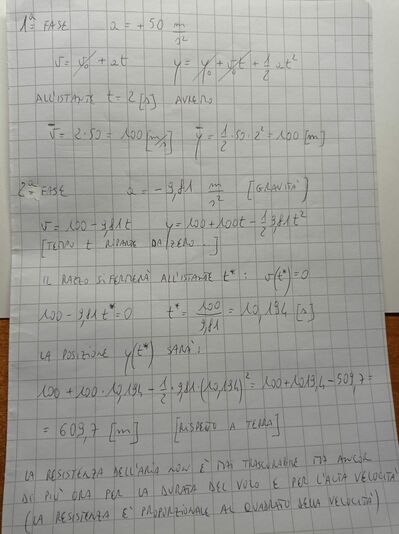 1ª FASE a = +50 m/s²
v = v₀ + at y = y₀ + v₀t + 1/2 at²
ALL'ISTANTE t = 2 [s] AVREMO
v̄ = 2·50 = 100 [m/s] ȳ = 1/2·50·2² = 100 [m]
2ª FASE a = -9,81 m/s² [GRAVITÀ]
v = 100 - 9,81t y = 100 + 100t - 1/2 9,81t²
[TEMPO t RIPARTE DA ZERO...]
IL RAZZO SI FERMERÀ ALL'ISTANTE t*: v(t*) = 0
100 - 9,81t* = 0 t* = 100/9,81 = 10,194 [s]
LA POSIZIONE y(t*) SARÀ:
100 + 100·10,194 - 1/2·9,81·(10,194)² = 100 + 1019,4 - 509,7 =
= 609,7 [m] [RISPETTO A TERRA]
LA RESISTENZA DELL'ARIA NON È MAI TRASCURABILE MA ANCOR
DI PIÙ ORA PER LA DURATA DEL VOLO E PER L'ALTA VELOCITÀ
(LA RESISTENZA È PROPORZIONALE AL QUADRATO DELLA VELOCITÀ)